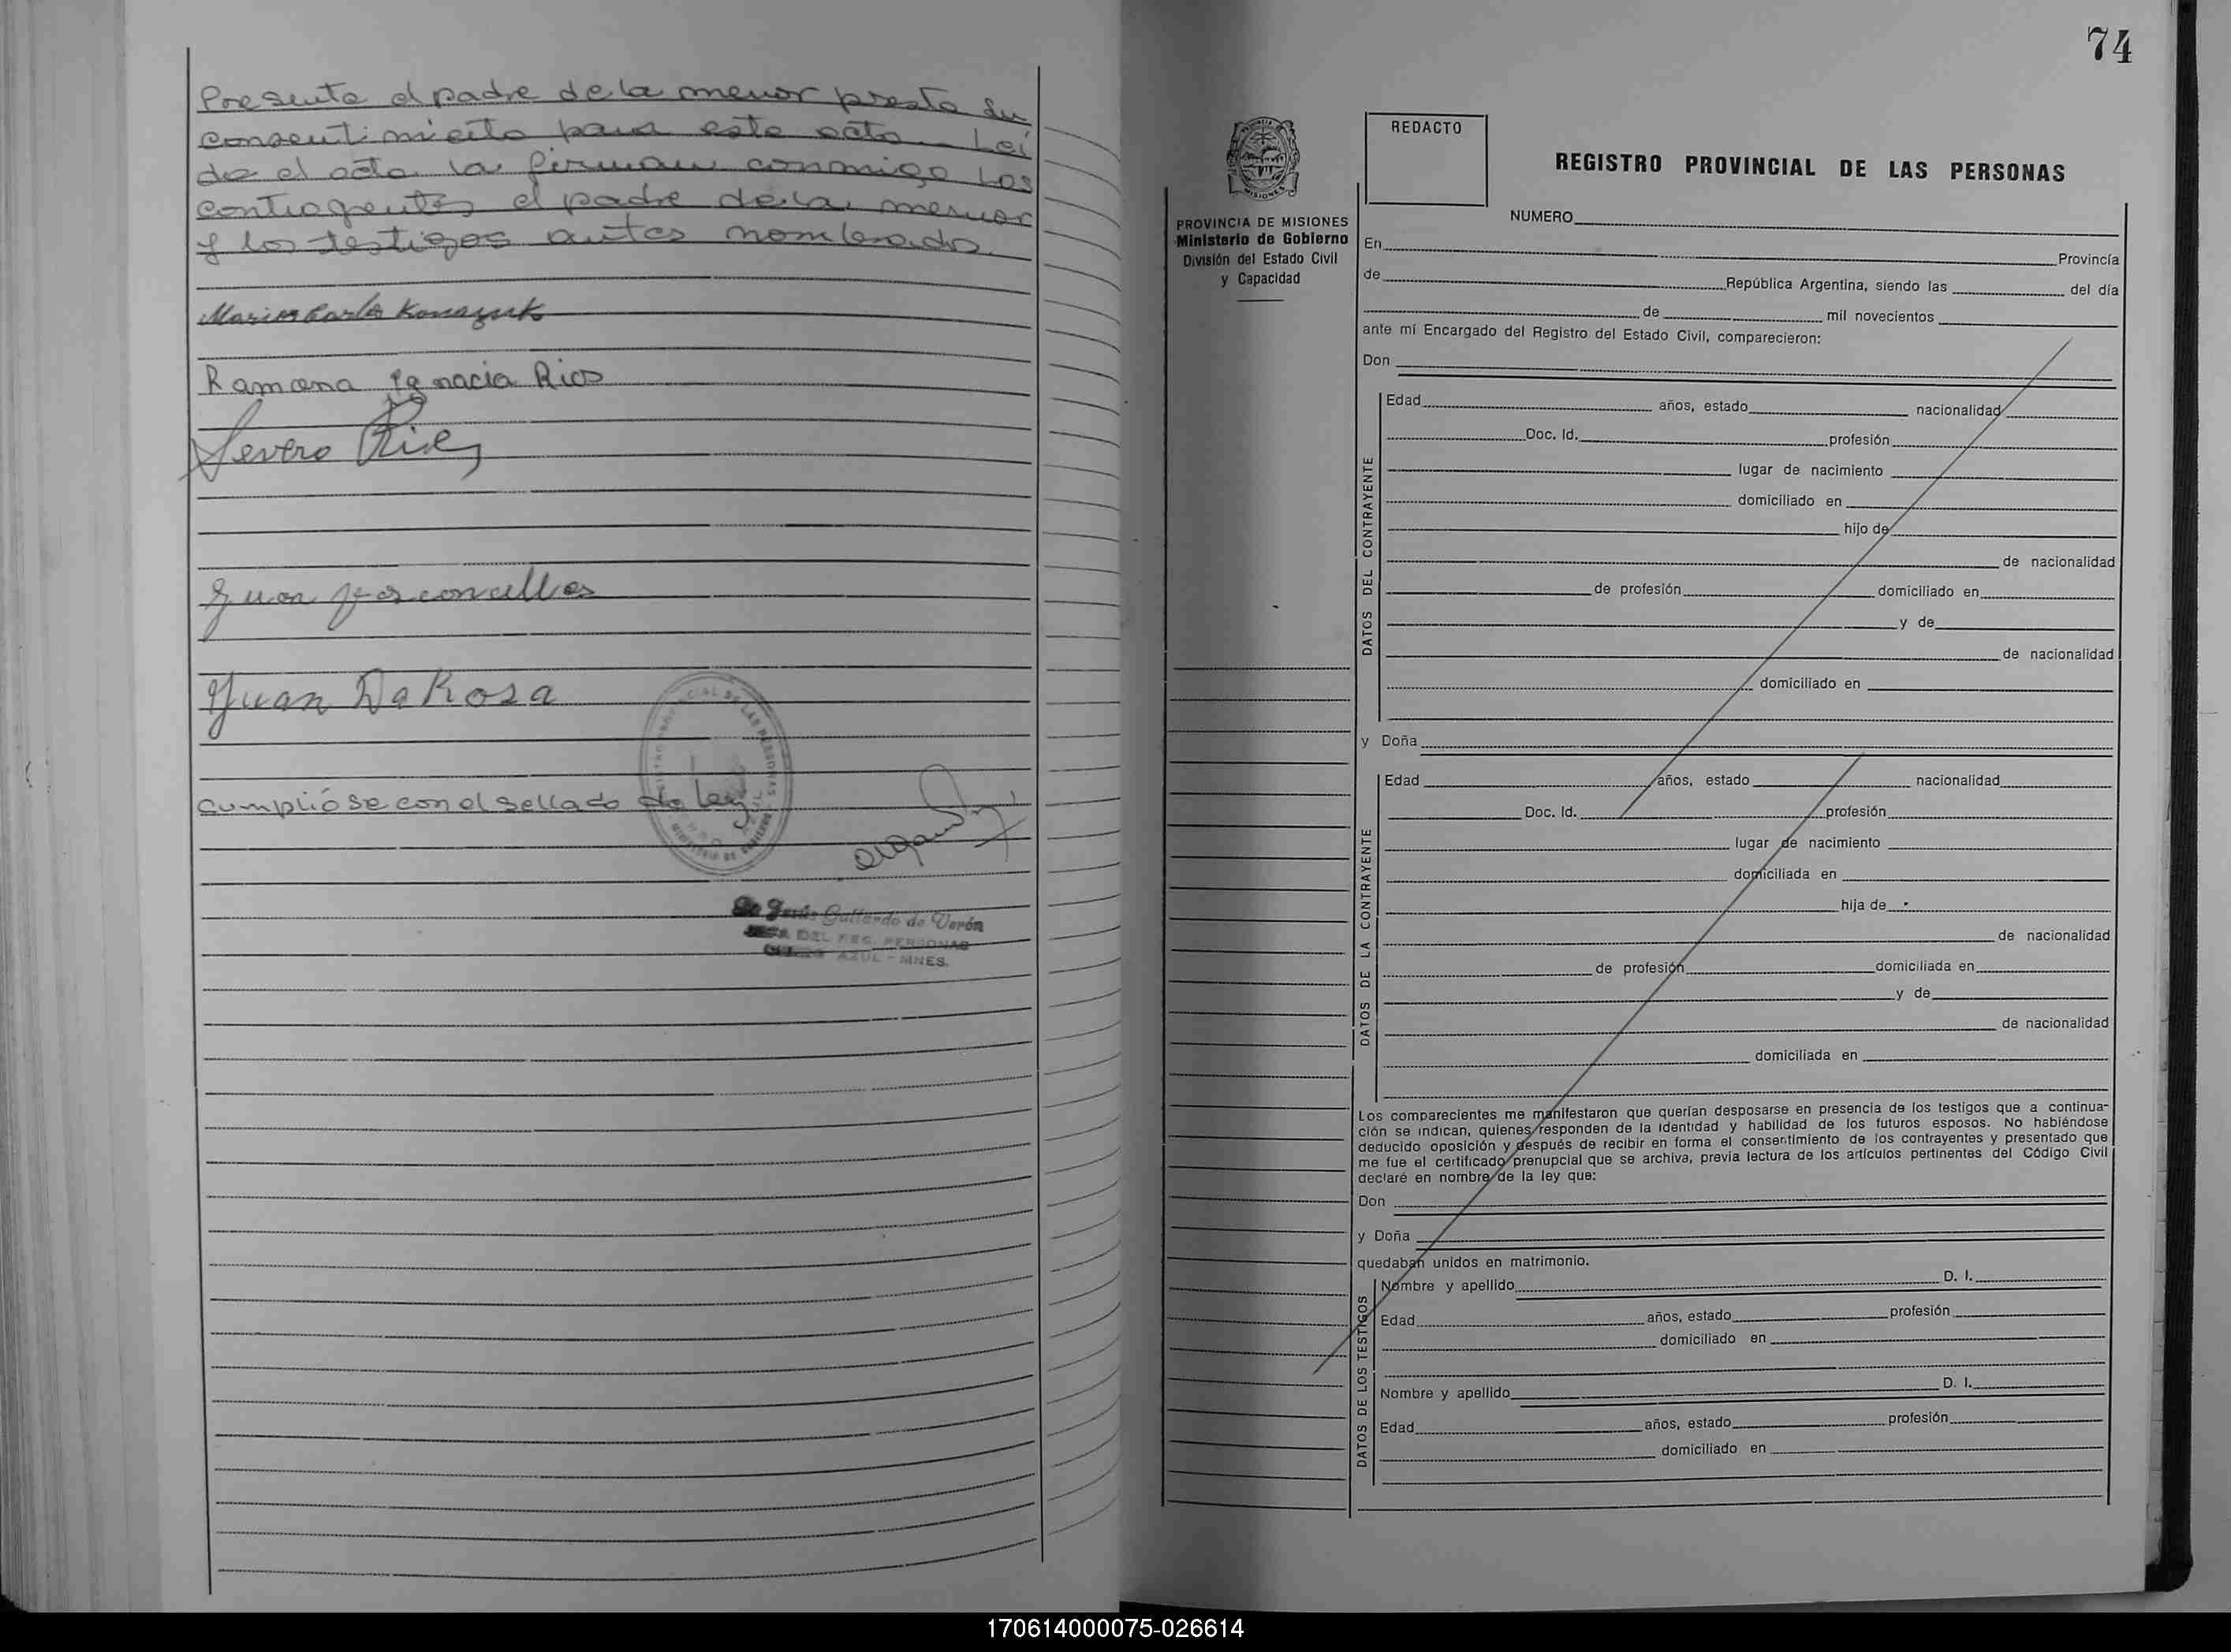 Presente el padre de la menor presta su
consentimiento para este acto. Leí
da el acta la firman conmigo los
contrayentes el padre de la menor
y los testigos antes nombrado.
Ramona Ignacia Rios
Severo Rios
Juan Vasconcellos
Juan Da Rosa
Cumplióse con el sellado de Ley
Jesús Gallardo de Verón
DEL REG. PERSONAS
AZUL - MNES.
74
REDACTO
REGISTRO PROVINCIAL DE LAS PERSONAS
PROVINCIA DE MISIONES
Ministerio de Gobierno
División del Estado Civil
y Capacidad
NUMERO
En Provincia
de República Argentina, siendo las del día
de mil novecientos
ante mí Encargado del Registro del Estado Civil, comparecieron:
Don
DATOS DEL CONTRAYENTE
Edad años, estado nacionalidad
Doc. Id. profesión
lugar de nacimiento
domiciliado en
hijo de
de nacionalidad
de profesión domiciliado en
y de
de nacionalidad
domiciliado en
y Doña
DATOS DE LA CONTRAYENTE
Edad años, estado nacionalidad
Doc. Id. profesión
lugar de nacimiento
domiciliada en
hija de
de nacionalidad
de profesión domiciliada en
y de
de nacionalidad
domiciliada en
Los comparecientes me manifestaron que querían desposarse en presencia de los testigos que a continua-
ción se indican, quienes responden de la identidad y habilidad de los futuros esposos. No habiéndose
deducido oposición y después de recibir en forma el consentimiento de los contrayentes y presentado que
me fue el certificado prenupcial que se archiva, previa lectura de los artículos pertinentes del Código Civil
declaré en nombre de la ley que:
Don
y Doña
quedaban unidos en matrimonio.
DATOS DE LOS TESTIGOS
Nombre y apellido D. I.
Edad años, estado profesión
domiciliado en
Nombre y apellido D. I.
Edad años, estado profesión
domiciliado en
170614000075-026614